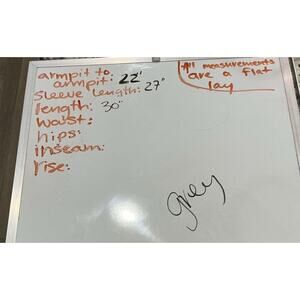 armpit to
armpit: 22"
sleeve length: 27"
length: 30"
waist:
hips:
inseam:
rise:
All measurements
are a flat
lay
grey